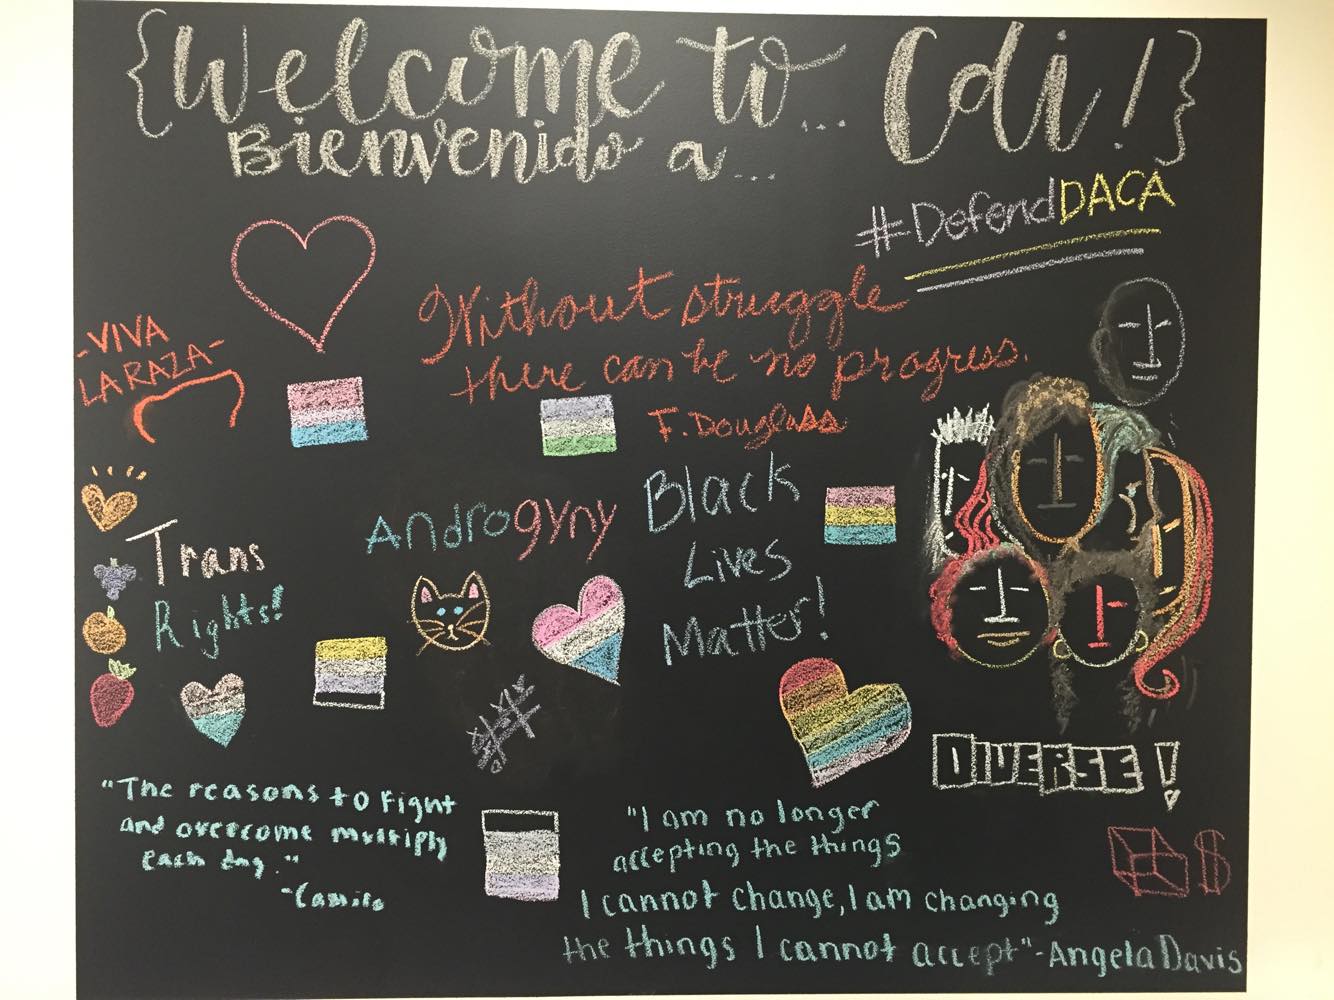 {Welcome to... Cdi!}
Bienvenido a...
#DefendDACA
-VIVA
LA RAZA-
Without struggle
there can be no progress.
F. Douglass
Androgyny
Black
Lives
Matter!
Trans
Rights!
DIVERSE!
"The reasons to Fight
and overcome multiply
each day."
-Camilo
"I am no longer
accepting the things
I cannot change, I am changing
the things I cannot accept"-Angela Davis